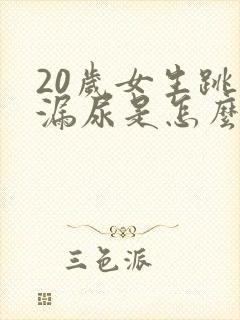 20歲女生跳
漏尿是怎麼
三色派